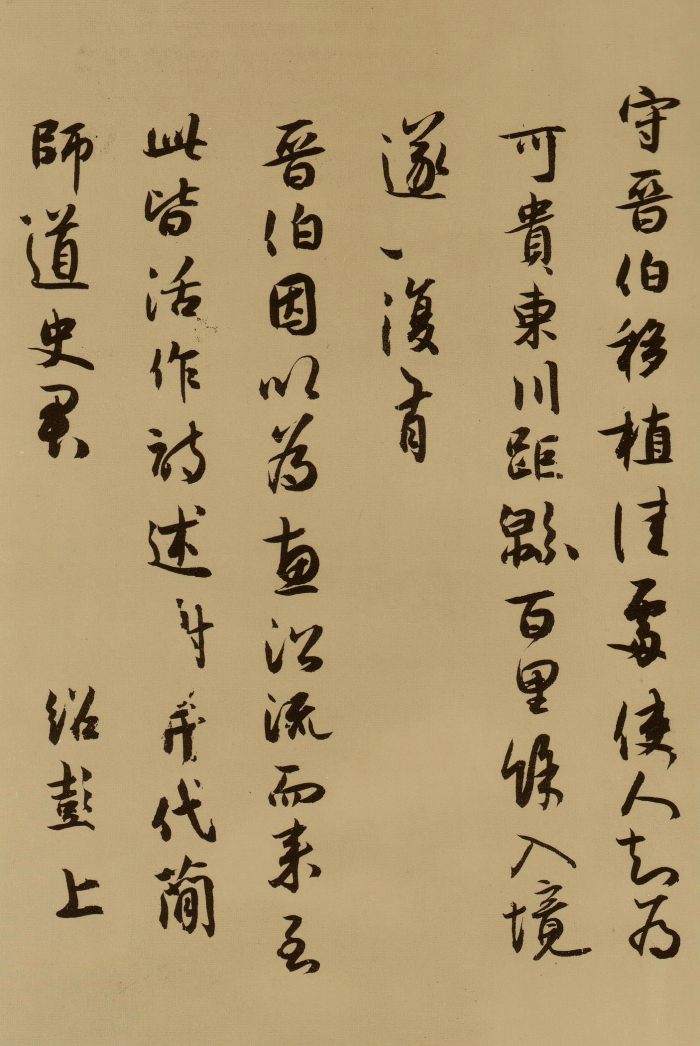 守晉伯移植佳處使人知為
可貴東川距緜百里餘入境
遂一復有
晉伯因以為惠沿流而来至
此皆活作詩述謝并代簡
師道史君 紹彭上